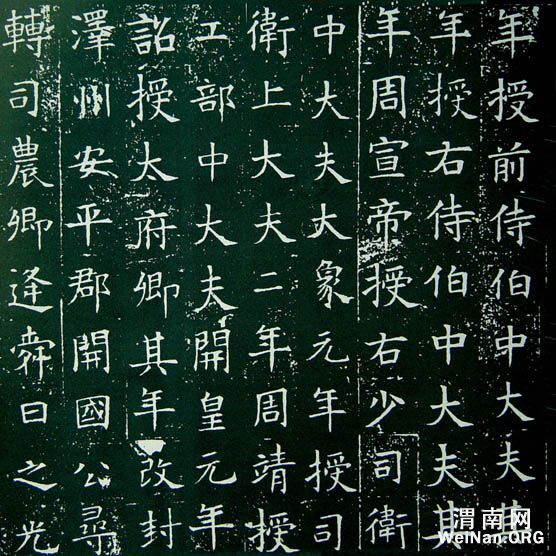 年授前侍伯中大夫其
年授右侍伯中大夫其
年周宣帝授右少司衛
中大夫大象元年授司
衛上大夫二年周靖授
工部中大夫開皇元年
詔授太府卿其年改封
澤州安平郡開國公尋
轉司農卿逢舜日之光
渭南网
WeiNan.ORG